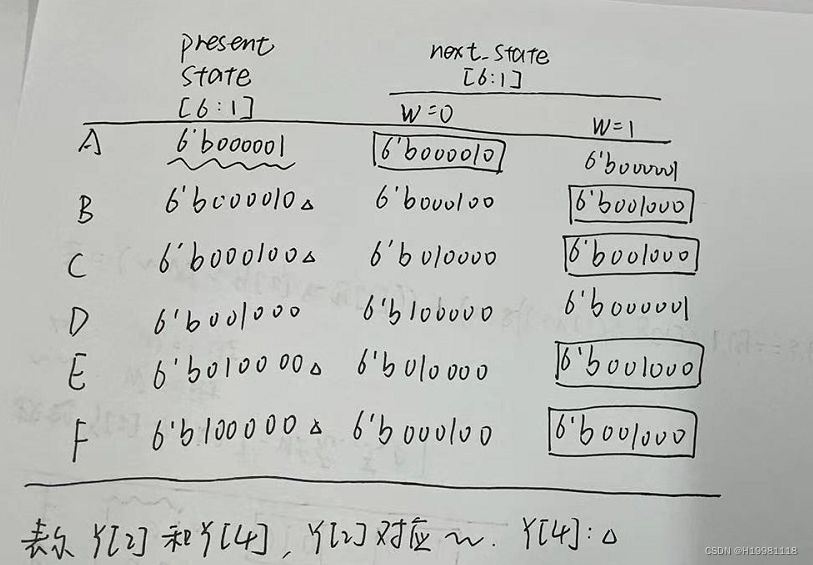 present next_state
state [6:1]
[6:1] W=0 W=1
A 6'b000001 6'b000010 6'b000001
B 6'b000010△ 6'b000100 6'b001000
C 6'b000100△ 6'b010000 6'b001000
D 6'b001000 6'b100000 6'b000001
E 6'b010000△ 6'b010000 6'b001000
F 6'b100000△ 6'b000100 6'b001000
表示 Y[2] 和 Y[4], Y[2] 对应 ~. Y[4]:△
CSDN @H19981118